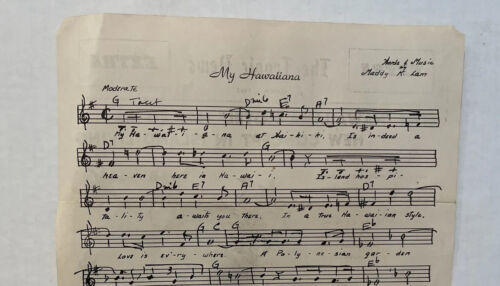 My Hawaiiana
Words & Music
by
Maddy K. Lam
Moderate
G Dmi6 E7 A7
My Ha-wai-i-a-na at Wai-ki-ki, Is indeed a
D7 G
hea-ven here in Ha-wai-i. Is-land hos-pi-
Dmi6 E7 A7 D7
ta-li-ty a-waits you There, In a True Ha-wai-ian style,
G C G Eb
Love is ev'ry-where. A Po-ly-nesian gar-den
G Eb